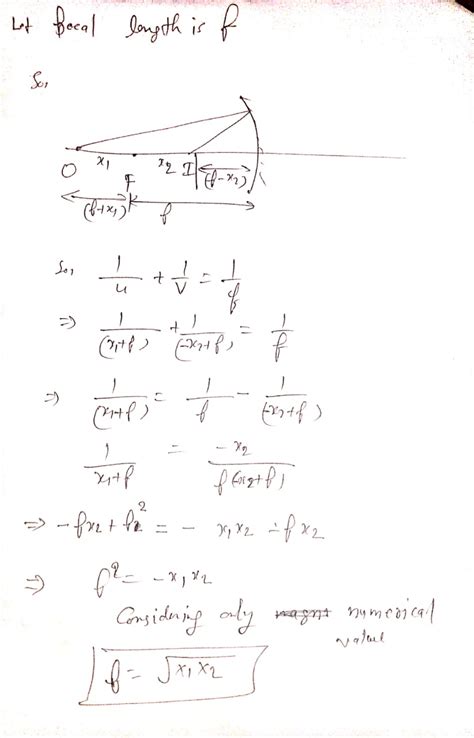 Let focal length is f
So,
O x₁ F x₂ I (f-x₂)
(f+x₁) f
So, 1/u + 1/v = 1/f
⇒ 1/(x₁+f) + 1/(-x₂+f) = 1/f
⇒ 1/(x₁+f) = 1/f - 1/(-x₂+f)
1/(x₁+f) = -x₂/(f(-x₂+f))
⇒ -fx₂ + f² = - x₁x₂ - fx₂
⇒ f² = -x₁x₂
Considering only numerical
value
f = √x₁x₂